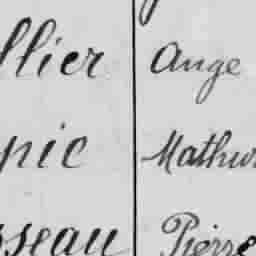 llier Ange
pic Mathur
sseau Pierre